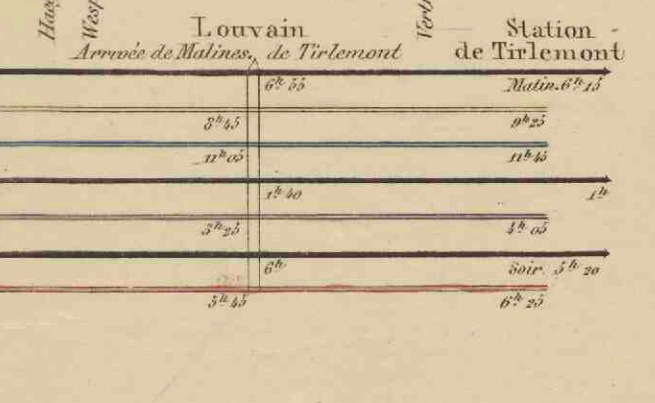 Haeg
Wesp
Louvain
Station
Arrivée de Malines, de Tirlemont
de Tirlemont
6ʰ 55 Matin. 6ʰ 15
8ʰ 45 9ʰ 25
11ʰ 05 11ʰ 45
1ʰ 40 1ʰ
3ʰ 25 4ʰ 05
6ʰ Soir. 5ʰ 20
5ʰ 45 6ʰ 25